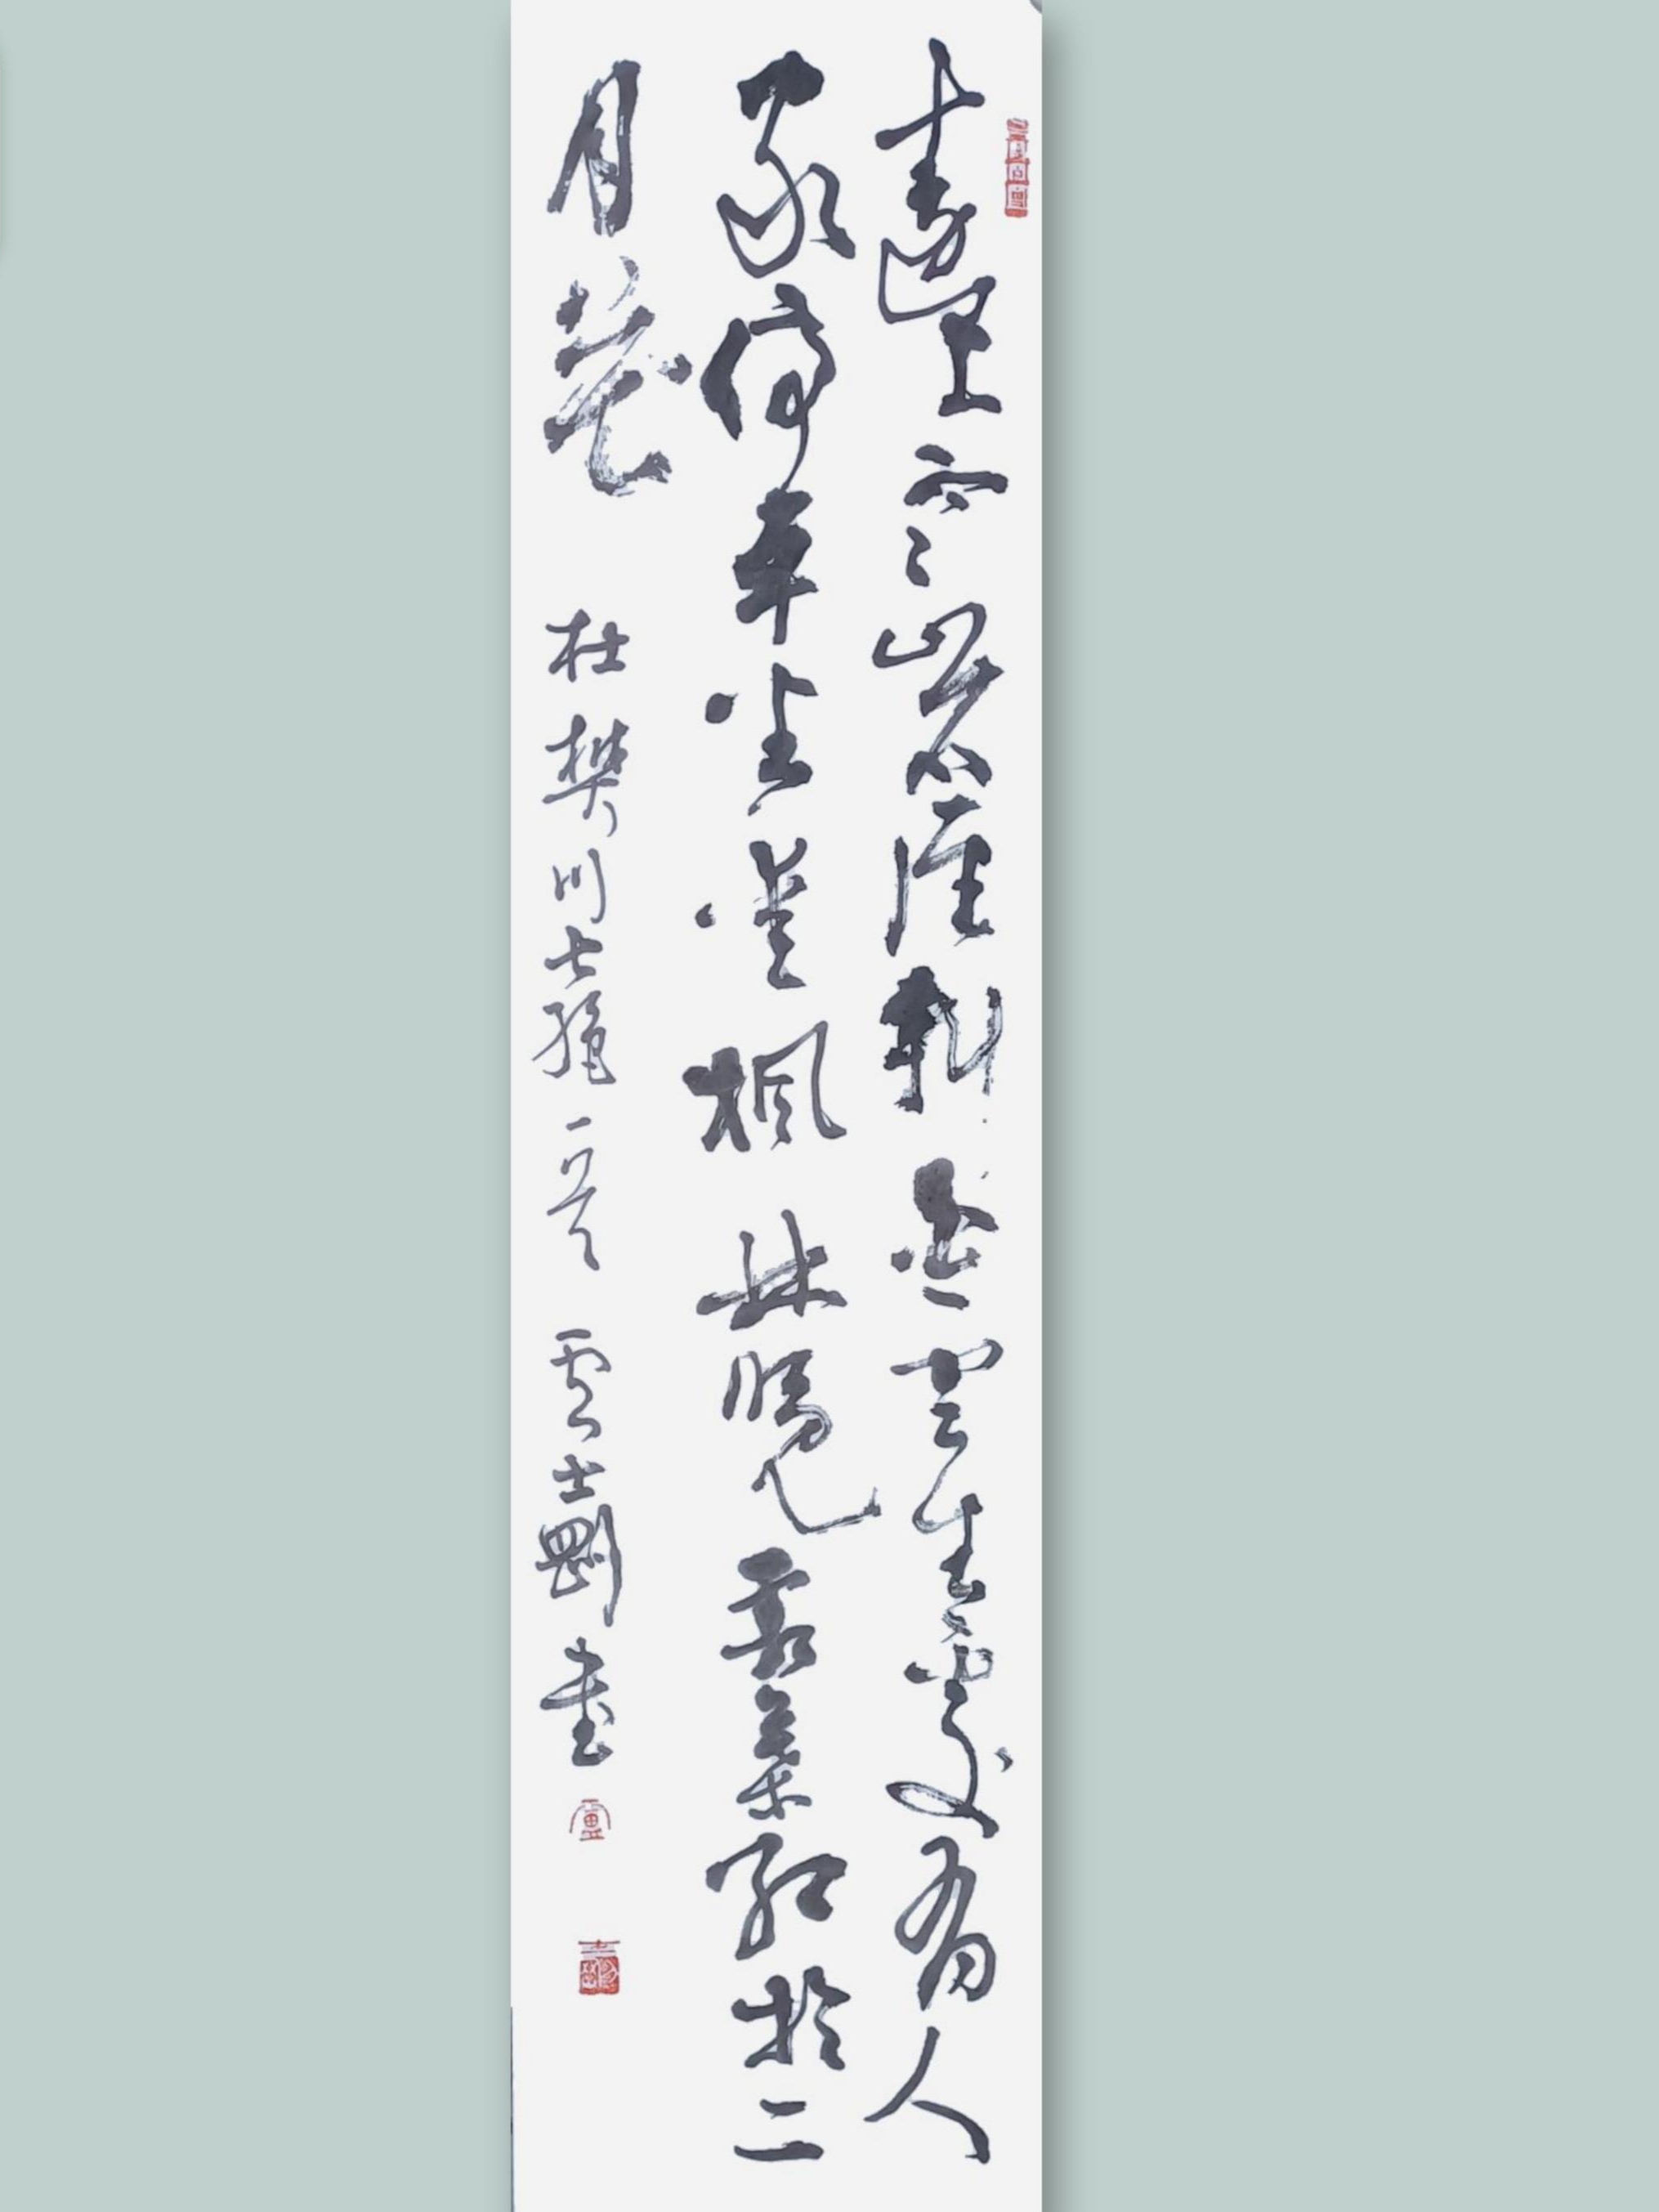 遠上寒山石徑斜白雲生處有人
家停車坐愛楓林晚霜葉紅於二
月花
杜樊川七絕一首 士剛書